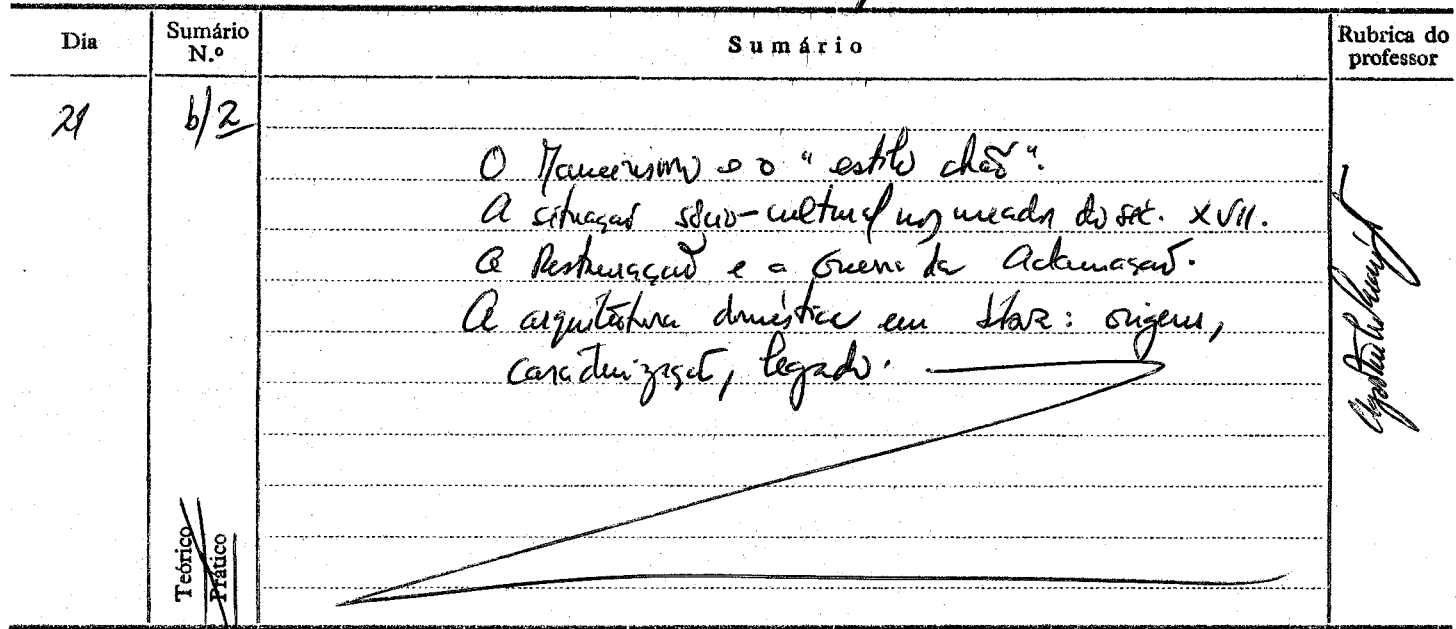 Dia
Sumário N.º
Sumário
Rubrica do professor
21
b/2
O Maneirismo e o "estilo chão".
A situação sócio-cultural nos meados do séc. XVII.
A Restauração e a Guerra da Aclamação.
A arquitectura doméstica em : origens,
caracterização, legado.
Teórico
Prático